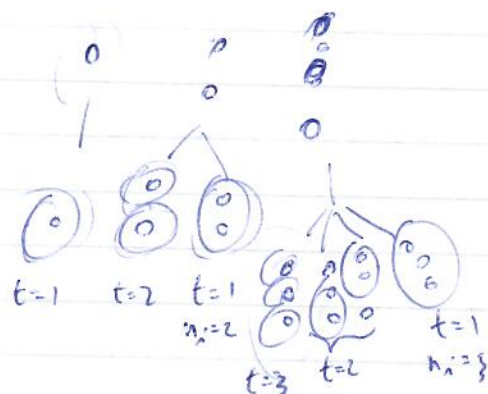 t=1 t=2 t=1
n_i=2
t=3 t=2 t=1
n_i=3